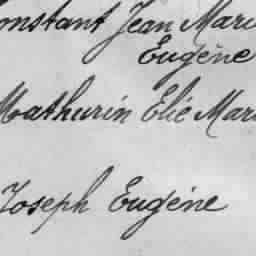 Constant Jean Marie
Eugène
Mathurin Elie Mar
Joseph Eugène